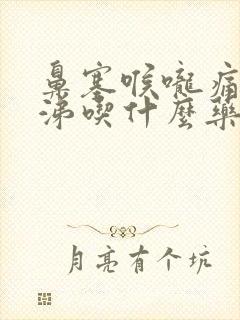 鼻塞喉嚨痛
涕喫什麼藥
月亮有个坑